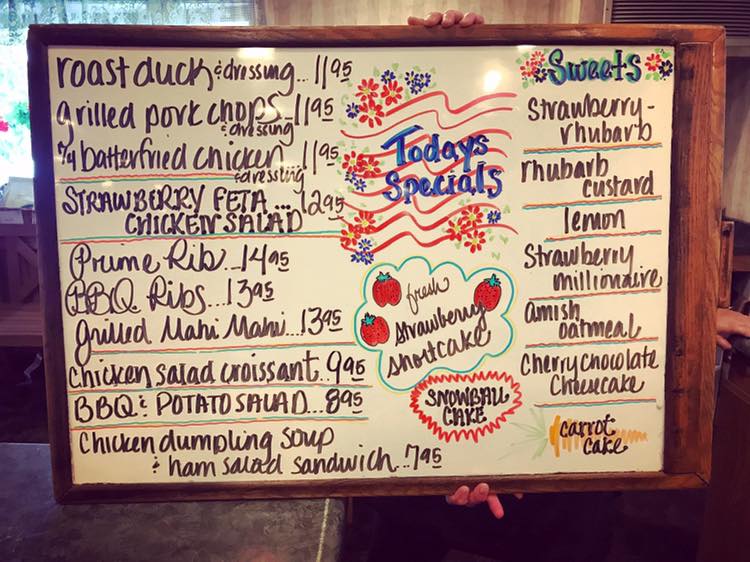 roast duck & dressing... 11 95
grilled pork chops... 11 95
& dressing
1/4 batterfried chicken 11 95
& dressing
STRAWBERRY FETA ... 12 95
CHICKEN SALAD
Prime Rib... 14 95
BBQ Ribs... 13 95
grilled Mahi Mahi... 13 95
chicken salad croissant... 9 95
BBQ & POTATO SALAD... 8 95
Chicken dumpling soup
& ham salad sandwich... 7 95
Todays
Specials
fresh
Strawberry
Shortcake
SNOWBALL
CAKE
Sweets
Strawberry-
rhubarb
rhubarb
custard
lemon
Strawberry
millionaire
amish
oatmeal
Cherry chocolate
Cheesecake
carrot
cake